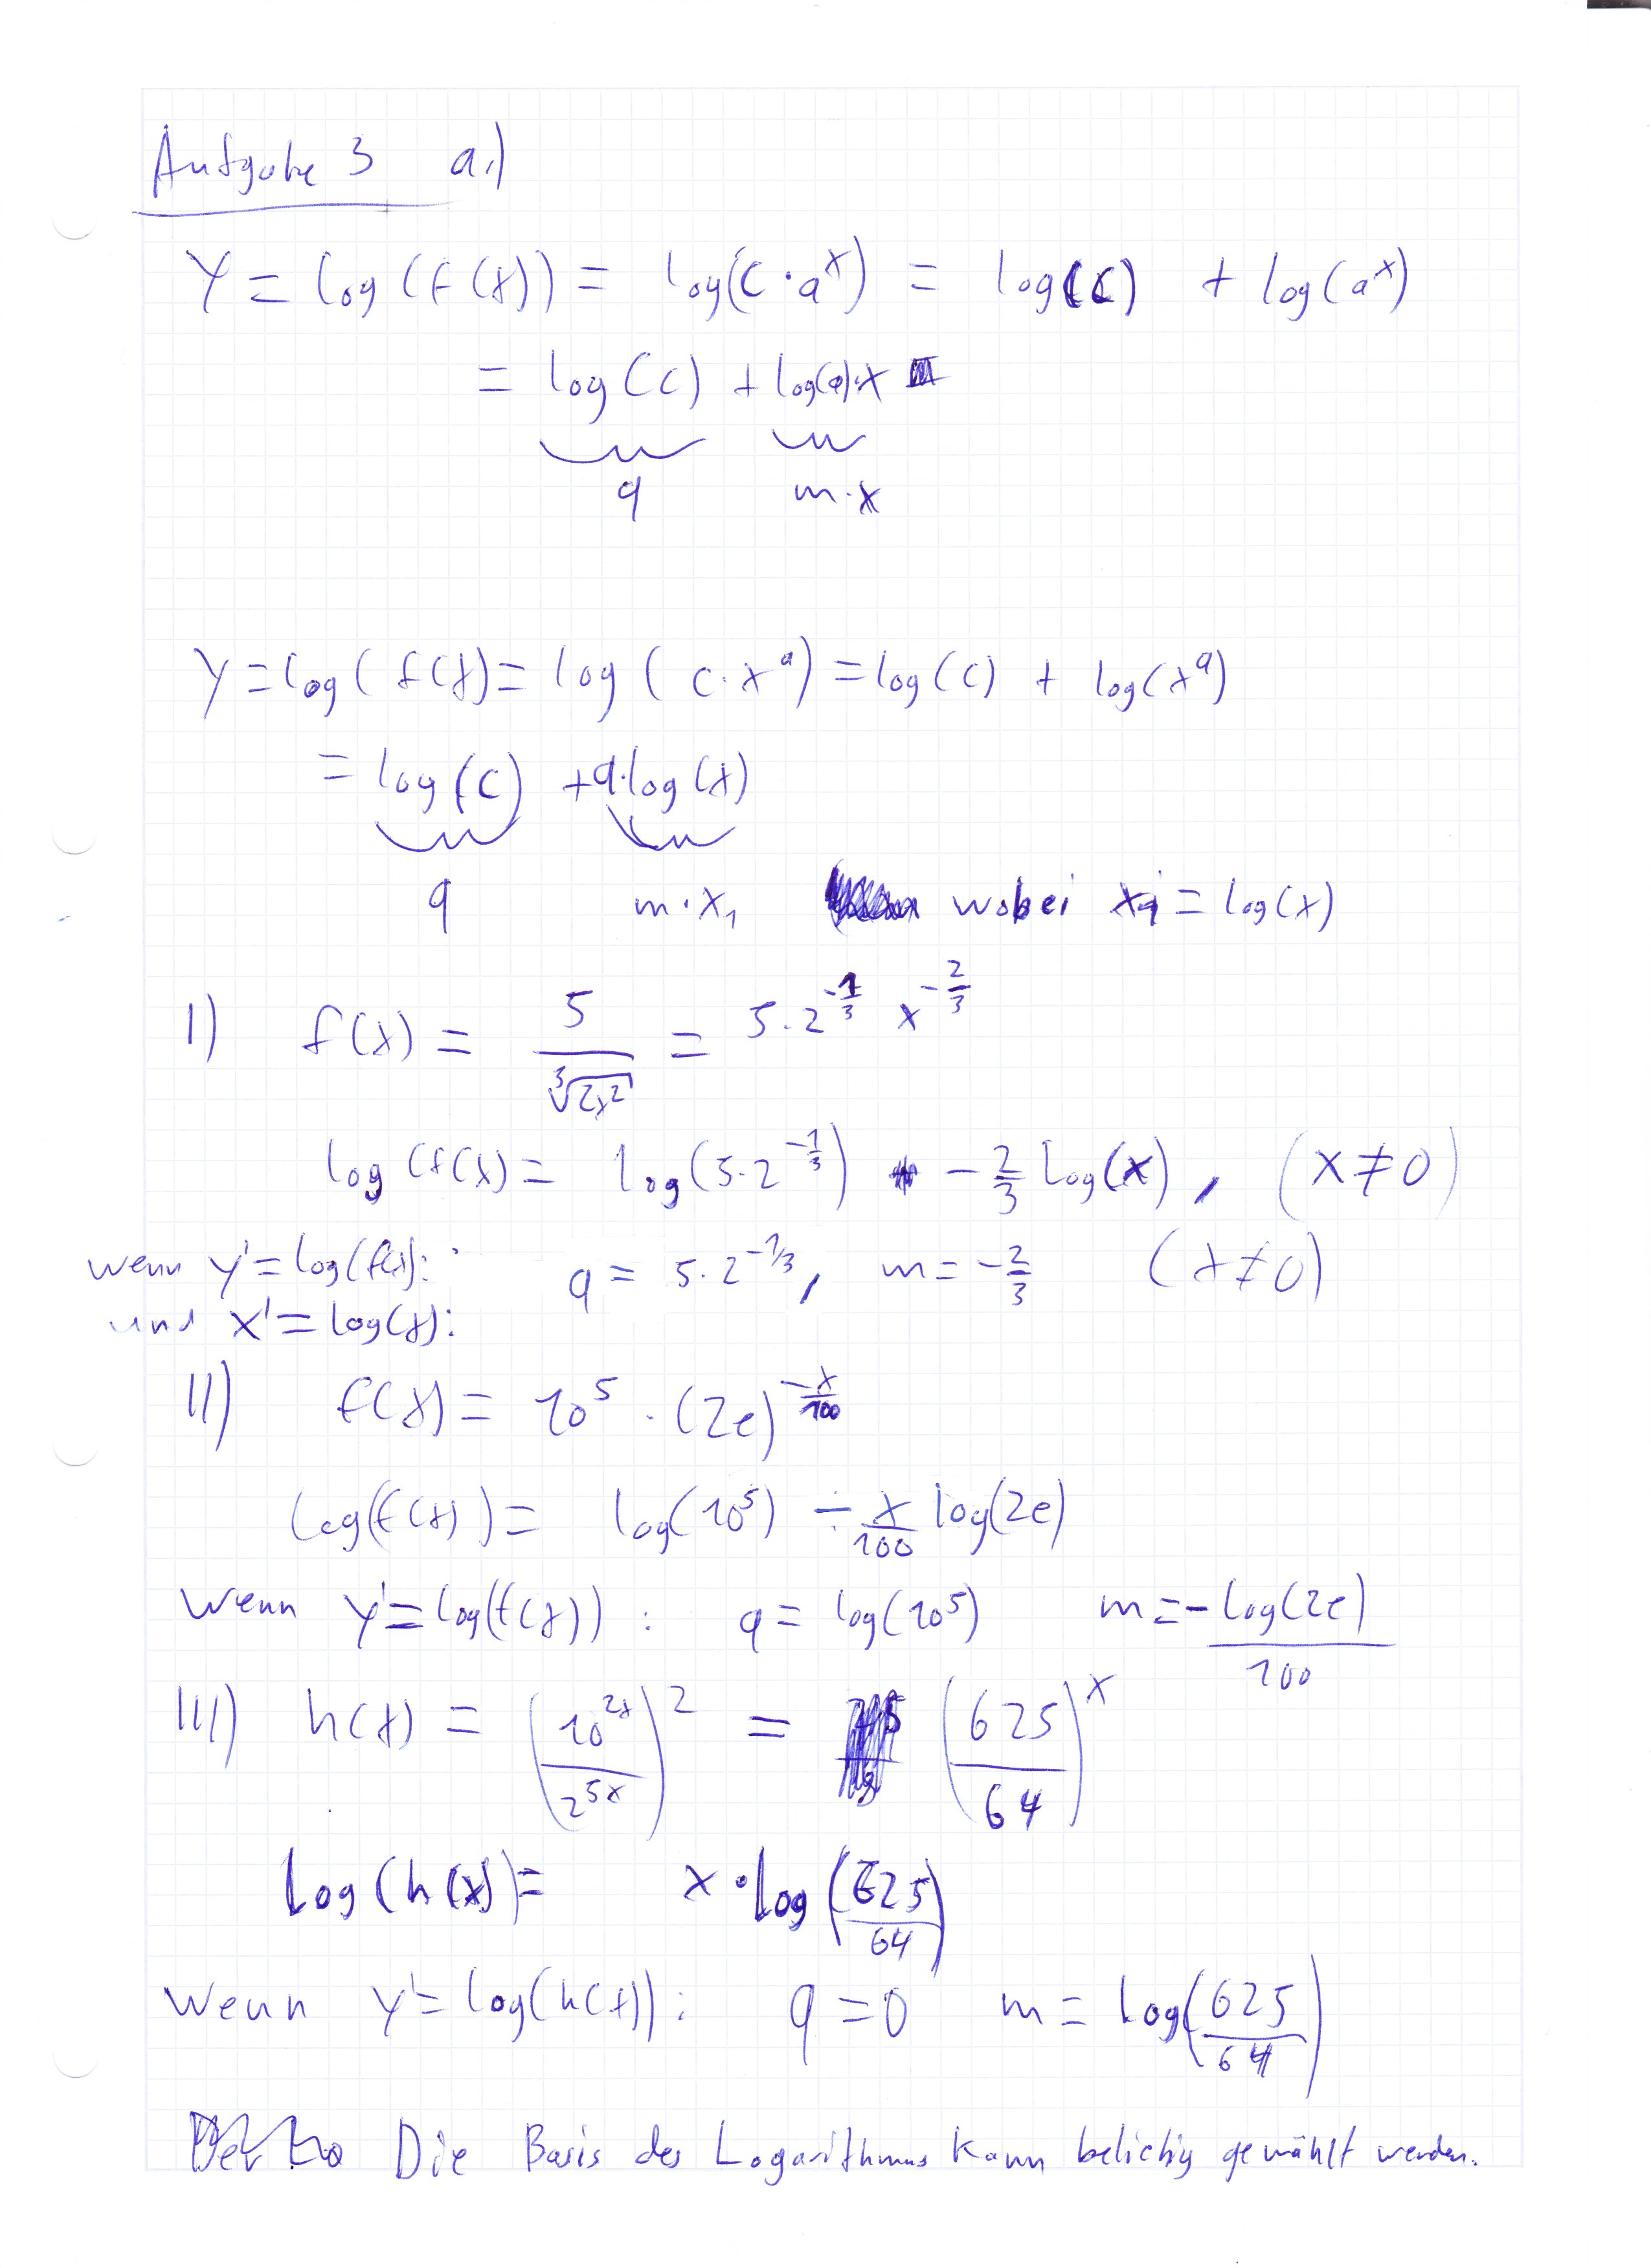 Aufgabe 3 a.)
Y = log(f(x)) = log(c · a^x) = log(c) + log(a^x)
= log(c) + log(a)·x
q m·x
Y = log(f(x) = log(c·x^a) = log(c) + log(x^a)
= log(c) + a·log(x)
q m·x₁ wobei x₁ = log(x)
I) f(x) = 5/∛(2x²) = 5·2^(-1/3) x^(-2/3)
log(f(x) = log(5·2^(-1/3)) - 2/3 log(x), (x≠0)
wenn y' = log(f(x): q = 5·2^(-1/3), m = -2/3 (x≠0)
und x' = log(x):
II) f(x) = 10^5 · (2e)^(-x/100)
log(f(x)) = log(10^5) ÷ x/100 log(2e)
Wenn y' = log(f(x)) : q = log(10^5) m = - log(2e)/100
III) h(x) = (10^(2x)/2^(5x))^2 = (625/64)^x
log(h(x)) = x · log(625/64)
Wenn y' = log(h(x)) : q = 0 m = log(625/64)
Die Basis des Logarithmus kann beliebig gewählt werden.